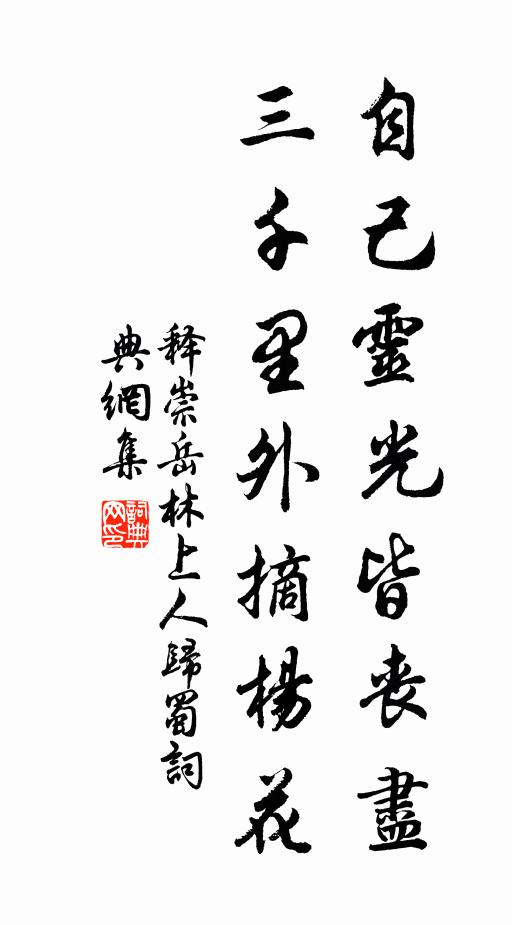 自己靈光皆喪盡
三千里外摘楊花
释崇岳林上人歸蜀詞
典網集
詞典
网印